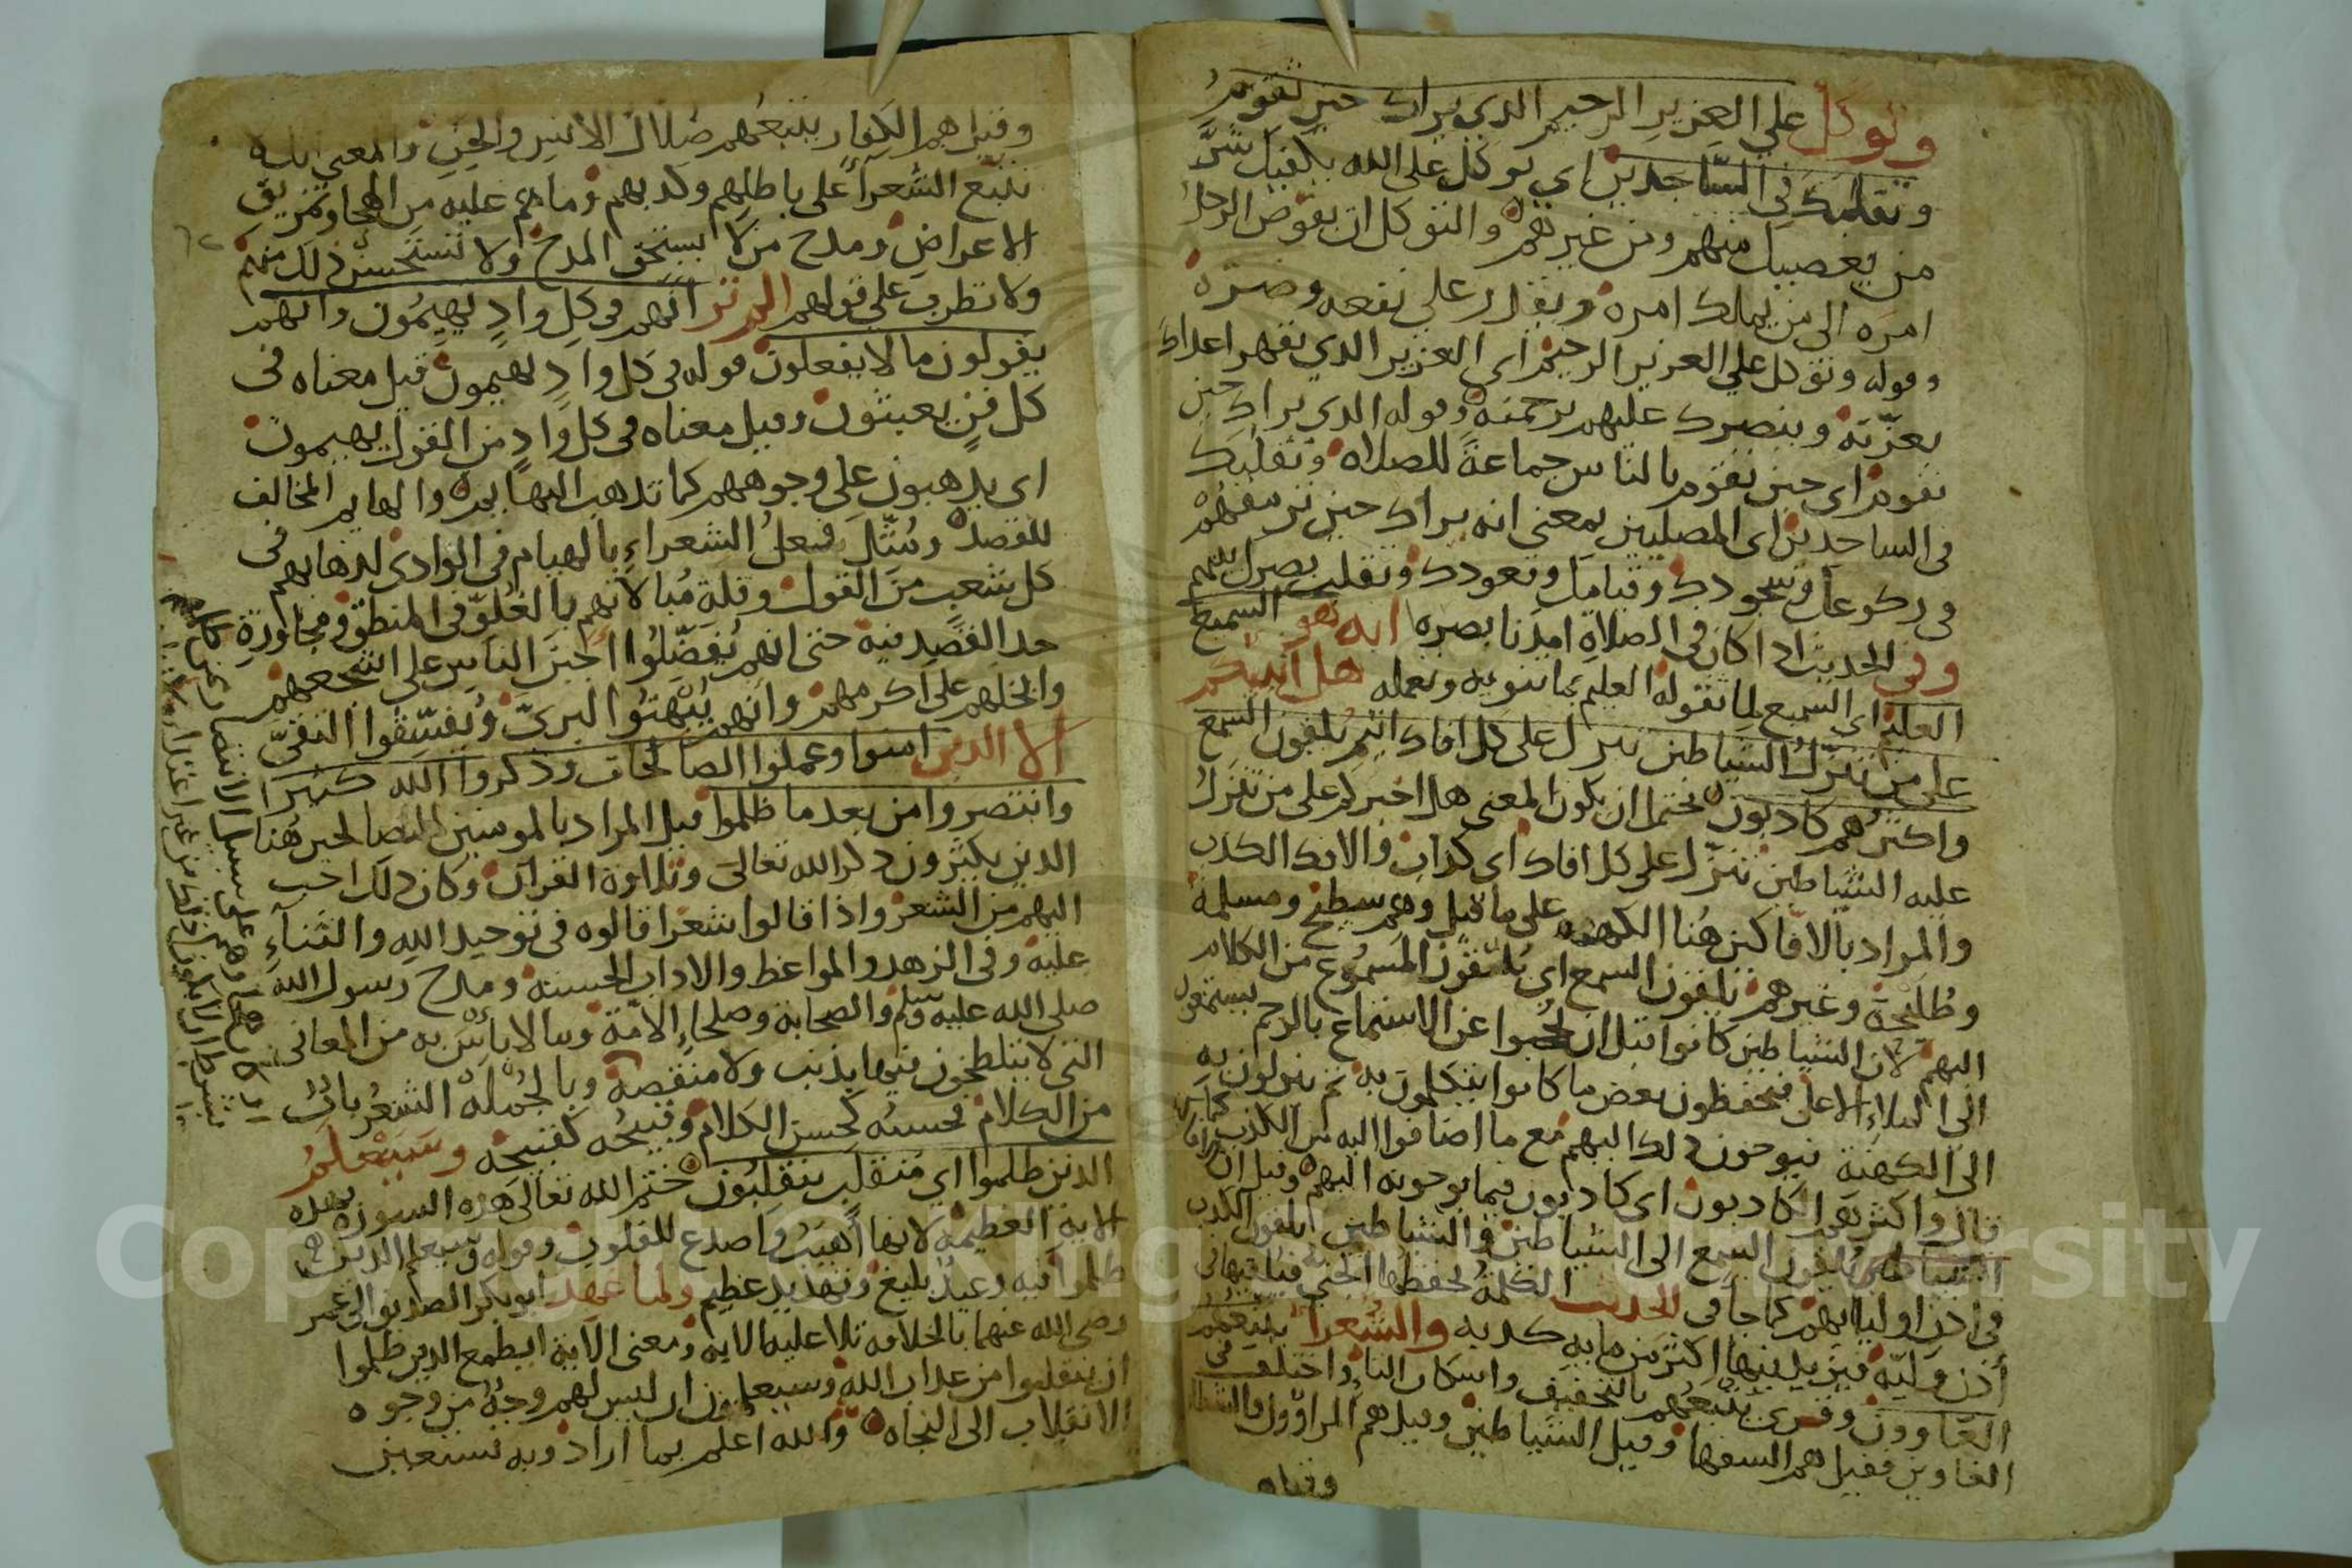 وتوكل على العزيز الرحيم الذي يراك حين تقوم
وتقلبك في الساجدين اي توكل على الله يكفيك شر
من يعصيك منهم ومن غيرهم والتوكل ان يفوض الرجل
امره الى من يملك امره ويقدر على نفعه وضره
وقوله وتوكل على العزيز الرحيم اي العزيز الذي يقهر اعداك
بعزته وينصرك عليهم برحمته وقوله الذي يراك حين
تقوم اي حين تقوم بالناس جماعة للصلاه وتقلبك
في الساجدين اي المصلين بمعنى انه يراك حين ترمقهم
في ركوعك وسجودك وقيامك وقعودك وتقلب بصرك فيهم
وفي الحديث اذا كان في الصلاة امدنا بصره انه هو السميع
العليم اي السميع لما تقوله العليم بما تنويه وتعمله هل انبئكم
على من تنزل الشياطين تنزل على كل افاك اثيم يلقون السمع
واكثرهم كاذبون يحتمل ان يكون المعنى هل اخبركم على من تنزل
عليه الشياطين تنزل على كل افاك اي كذاب والافك الكذب
والمراد بالافاكين هنا الكهنه على ما قيل وهم سطيح ومسلمة
وطليحة وغيرهم يلقون السمع اي يلقون المسموع من الكلام
اليهم لان الشياطين كانوا قبل ان يحجبوا عن الاستماع بالرجم يستمعون
الى الملاء الاعلى فيحفظون بعض ما كانوا يتكلمون به ثم ينزلون به
الى الكهنة فيوحون ذلك اليهم مع ما اضافوا اليه من الكذب كما
قال واكثرهم كاذبون اي كاذبون فيما يوحونه اليهم وقيل ان
الشياطين يلقون السمع الى الشياطين والشياطين يلقون الكذب
في اذن اوليائهم كما جا في الحديث الكلمة يحفظها الجني فيلقيها في
أذن وليه فيزيد فيها اكثر من مايه كذبه والشعرا يتبعهم
الغاوون وقرئ يتبعهم بالتخفيف واسكان التاء واختلف في
الغاوين فقيل هم السفها وقيل الشياطين وقيل هم الراوون
وقيل هم الكفار يتبعهم ضلال الانس والجن والمعنى انه
تتبع الشعرا على باطلهم وكذبهم وما هم عليه من الهجا وتمزيق
الاعراض ومدح من لا يستحق المدح ولا تستحسن ذلك منهم
ولا تطرب على قولهم الم تر انهم في كل واد يهيمون وانهم
يقولون ما لا يفعلون قوله في كل واد يهيمون قيل معناه في
كل فن يعبثون وقيل معناه في كل واد من القول يهيمون
اي يذهبون على وجوههم كما تذهب البهايم والهايم المخالف
للقصد ومثل فعل الشعراء بالهيام في الوادي لذهابهم في
كل شعب من القول وقلة مبالاتهم بالغلو في المنطق ومجاوزة
حد القصد فيه حتى انهم يفضلوا اجبن الناس على اشجعهم
وابخلهم على اكرمهم وانهم يبهتوا البرئ ويفسقوا التقي
الا الذين امنوا وعملوا الصالحات وذكروا الله كثيرا
وانتصروا من بعد ما ظلموا قيل المراد بالمومنين الصالحين هنا
الذين يكثرون ذكر الله تعالى وتلاوة القرآن وكان ذلك احب
اليهم من الشعر واذا قالوا شعرا قالوه في توحيد الله والثناء
عليه وفي الزهد والمواعظ والاداب الحسنه ومدح رسول الله
صلى الله عليه وسلم والصحابة وصلحاء الامة وما لا باس به من المعاني
التي لا يتلطخون فيها بذنب ولا منقصة وبالجملة الشعر باب
من الكلام فحسنه كحسن الكلام وقبيحه كقبيحه وسيعلم
الذين ظلموا اي منقلب ينقلبون ختم الله تعالى هذه السورة بهذه
الاية العظيمة لانها أهيب واصدع للقلوب وقوله وسيعلم الذين
ظلموا فيه وعيد بليغ وتهديد عظيم ولما عهد ابو بكر الصديق الى عمر
رضي الله عنهما بالخلافه تلا عليه الايه ومعنى الاية ايطمع الذين ظلموا
ان ينقلبوا من عذاب الله وسيعلمون ان ليس لهم وجه من وجوه
الانقلاب الى النجاه والله اعلم بما اراد وبه نستعين